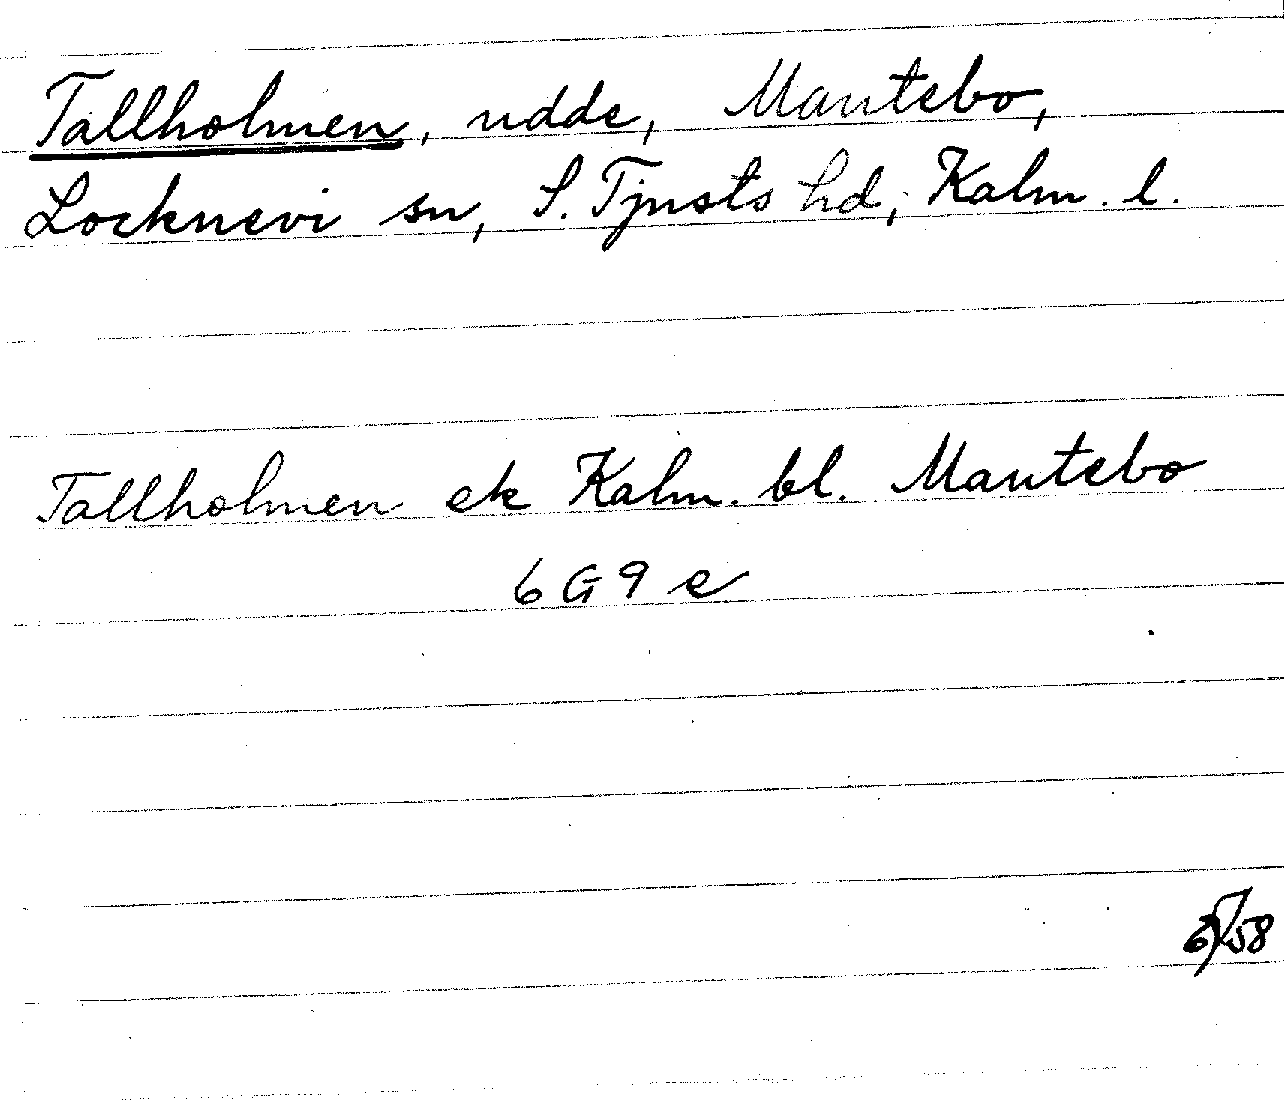 Tallholmen, udde, Mantebo,
Locknevi sn, S. Tjusts hd, Kalm. l.
Tallholmen ek Kalm. bl. Mantebo
6 G 9 e